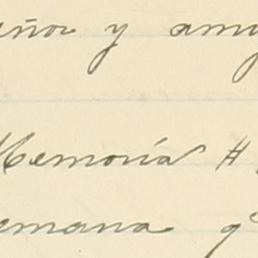 eñor y ami
Memoria #
emana q